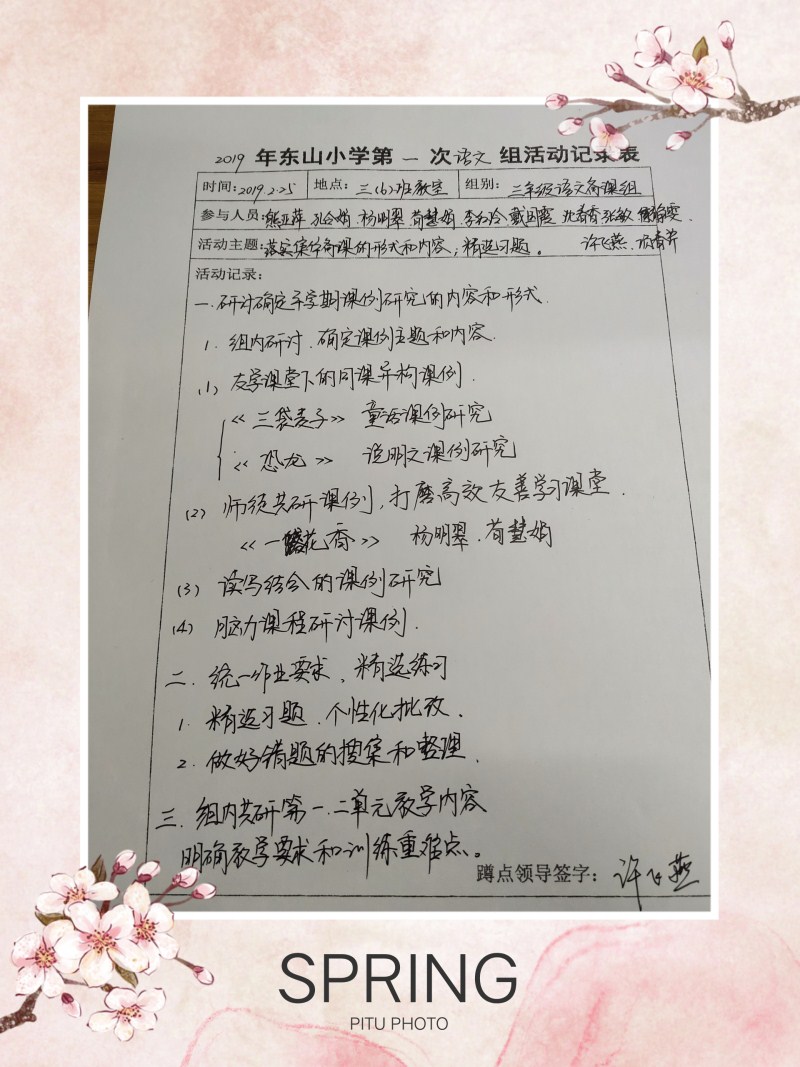 2019 年东山小学第 一 次 语文 组活动记录表
时间: 2019.2.25 地点: 三(6)班教室 组别: 三年级语文备课组
参与人员: 熊亚萍 孔令娟 杨明翠 荀慧娟 李红玲 戴国霞 沈春香 张敏
活动主题: 落实集体备课的形式和内容,精选习题。 许飞燕.
活动记录:
一.研讨确定本学期课例研究的内容和形式.
1. 组内研讨.确定课例主题和内容.
(1) 友学课堂下的同课异构课例.
《三袋麦子》 童话课例研究
《恐龙》 说明文课例研究
(2) 师徒共研课例,打磨高效友善学习课堂.
《一路花香》 杨明翠.荀慧娟
(3) 读写结合的课例研究
(4) 脑力课程研讨课例.
二.统一作业要求、精选练习
1. 精选习题.个性化批改.
2. 做好错题的搜集和整理.
三.组内共研第一.二单元教学内容
明确教学要求和训练重难点。
蹲点领导签字: 许飞燕
SPRING
PITU PHOTO